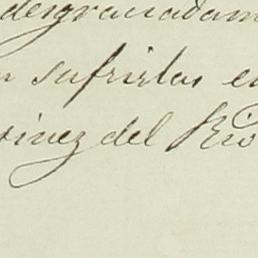 desgraciadam
n sufrirlas e
tinez del Rio